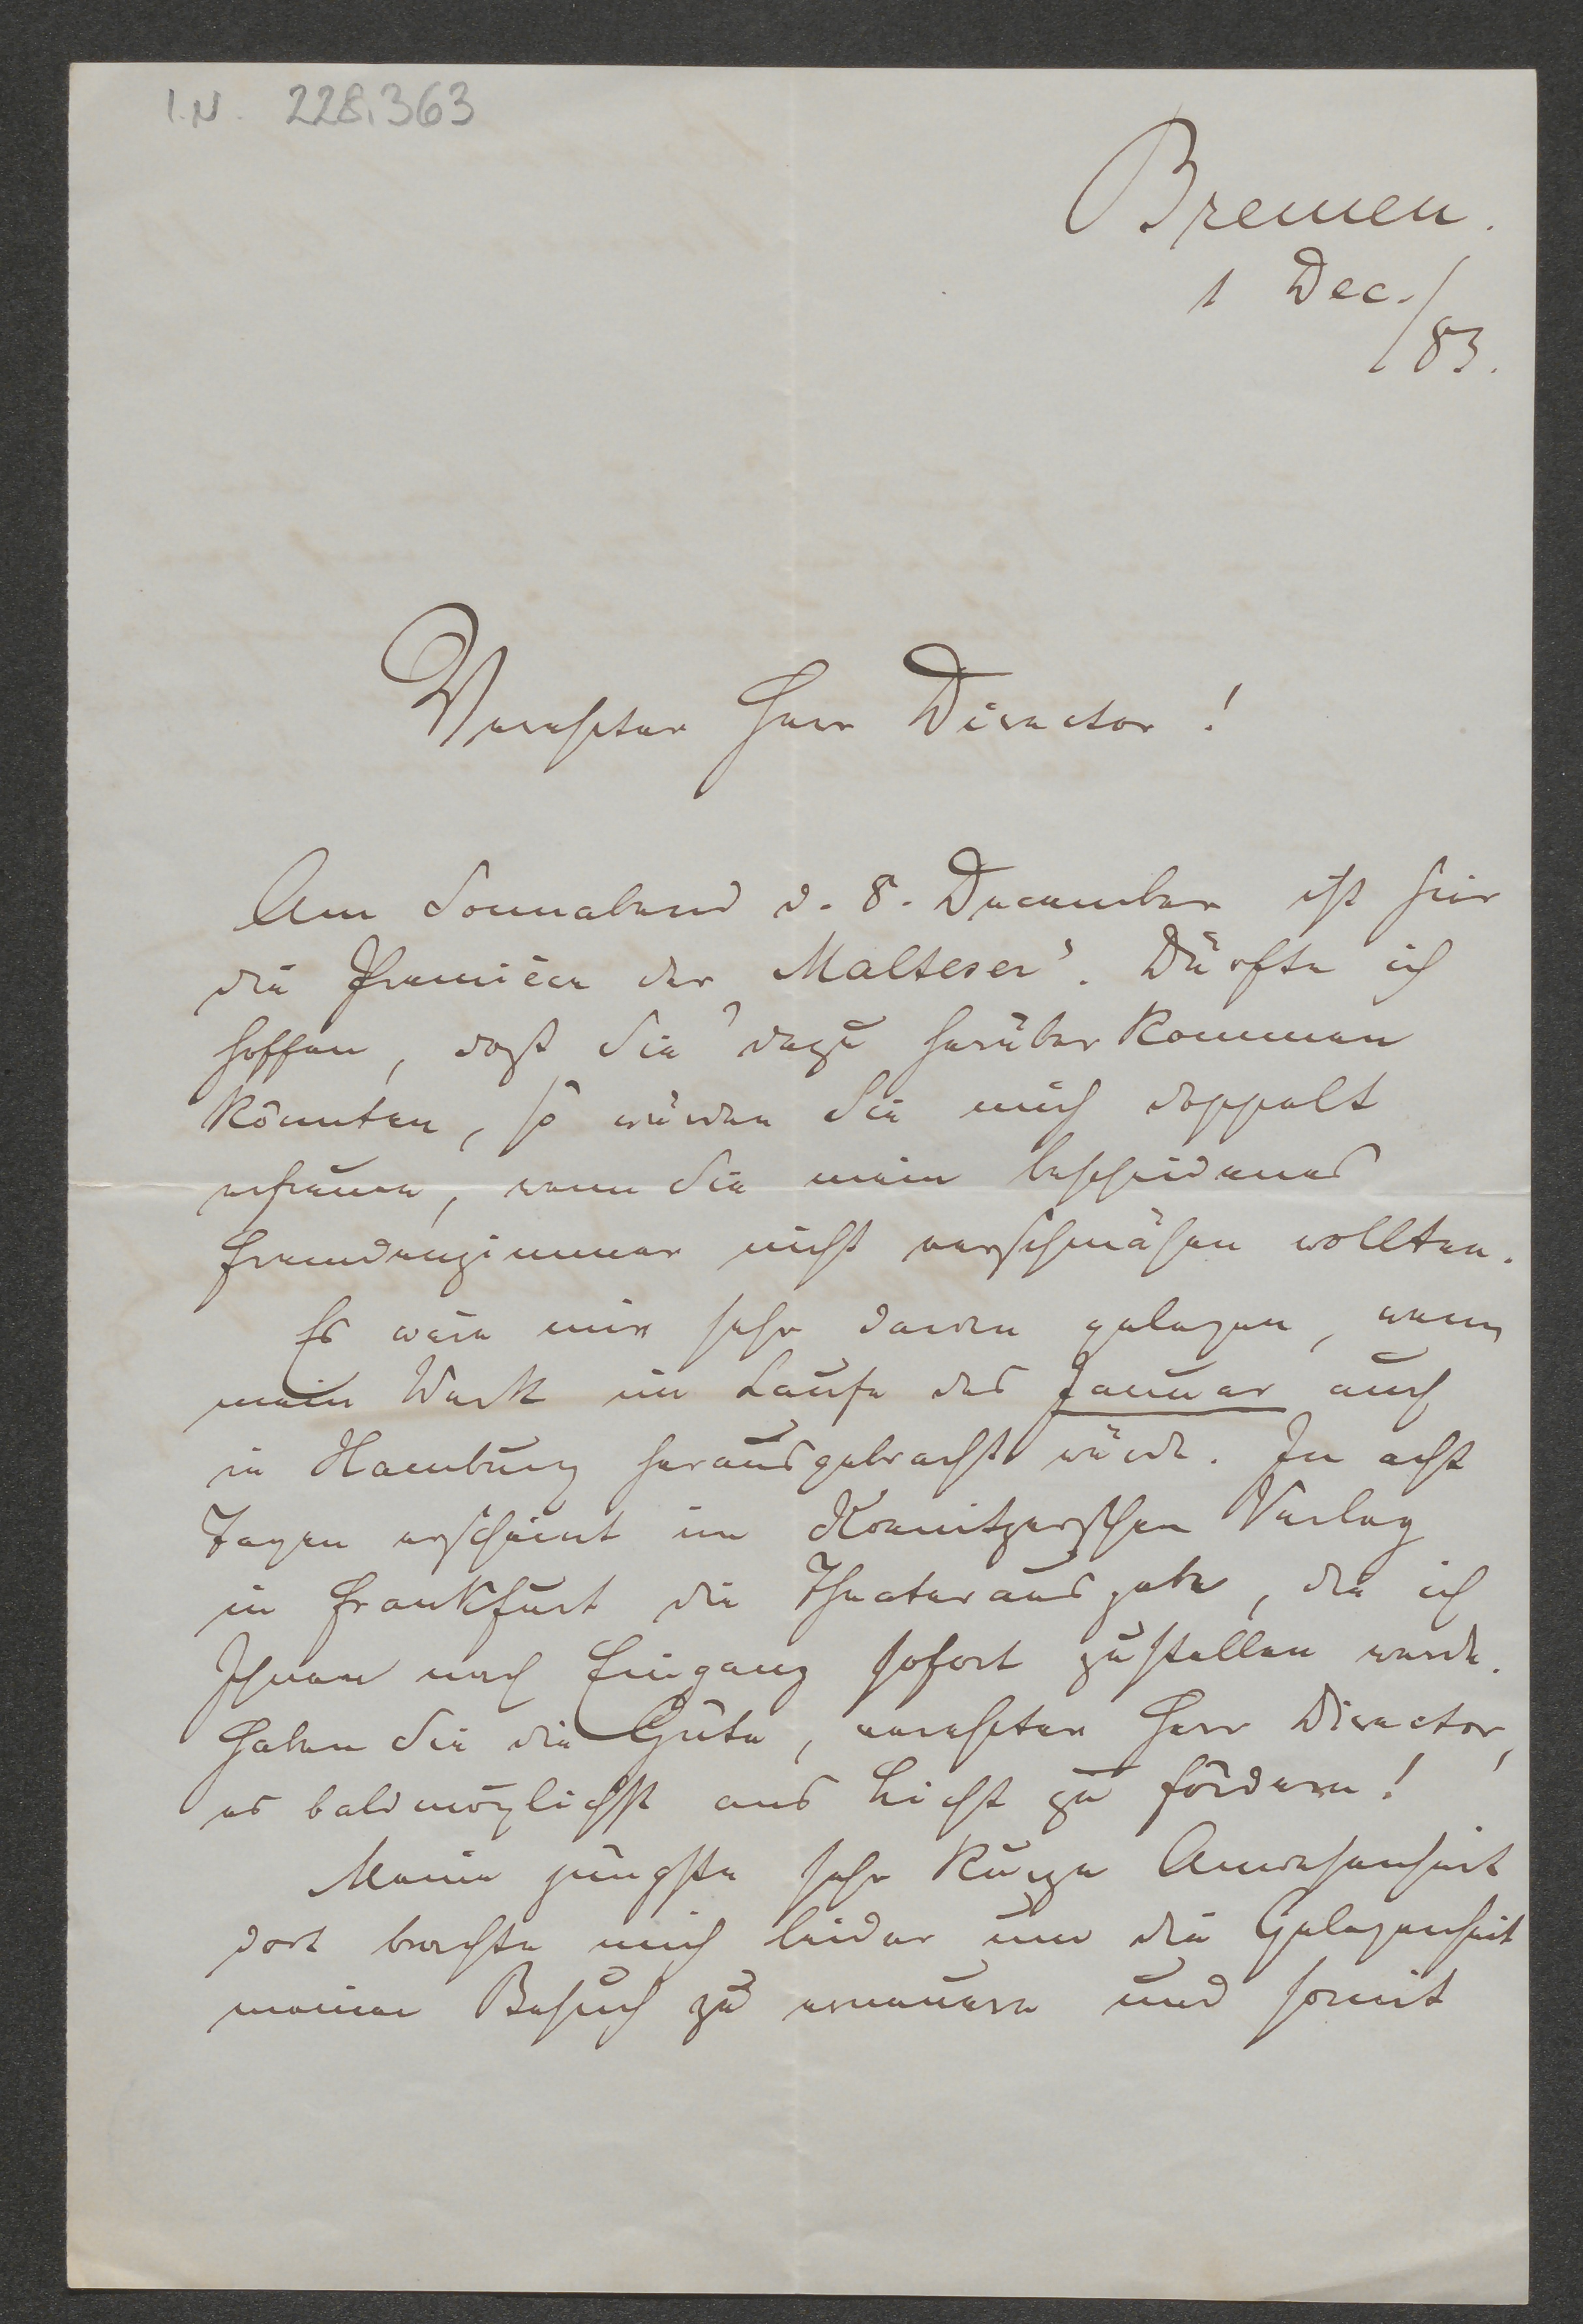 I.N. 228.363
Bremen.
1 Dec./83.
Verehrter Herr Director!
Am Sonnabend d. 8. December ist hier
die Première der „Malteser“. Dürfte ich
hoffen, daß Sie dazu herüber kommen
könnten, so würden Sie mich doppelt
erfreuen, wenn Sie mein bescheidenes
Fremdenzimmer nicht verschmähen wollten.
Es wäre mir sehr daran gelegen, wenn
mein Werk im Laufe des Januar auch
in Hamburg herausgebracht würde. In acht
Tagen erscheint im Koenitzerschen Verlag
in Frankfurt die Theaterausgabe, die ich
Ihnen nach Eingang sofort zustellen werde.
Haben Sie die Güte, verehrter Herr Director,
es baldmöglichst ans Licht zu fördern!
Meine jüngste sehr kurze Anwesenheit
dort brachte mich leider um die Gelegenheit
meinen Besuch zu erneuern und somit